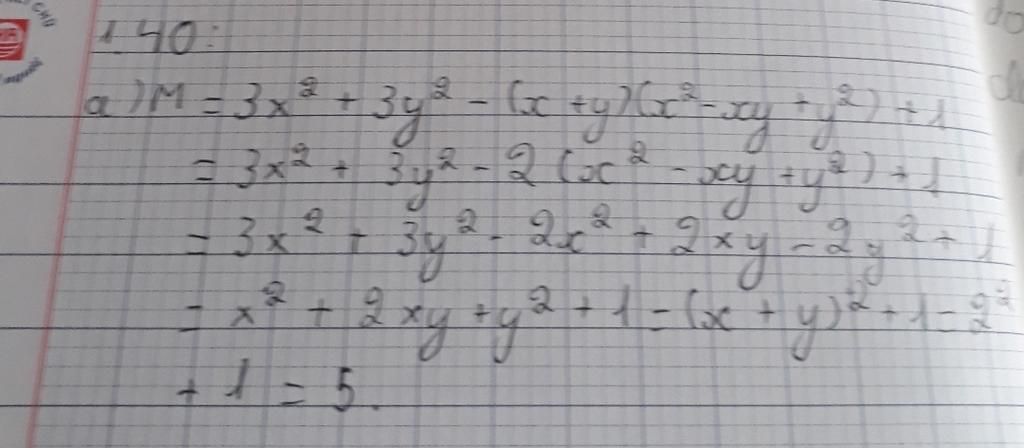 1.40:
a) M = 3x² + 3y² - (x + y)(x² - xy + y²) + 1
= 3x² + 3y² - 2(x² - xy + y²) + 1
= 3x² + 3y² - 2x² + 2xy - 2y² + 1
= x² + 2xy + y² + 1 = (x + y)² + 1 = 2²
+ 1 = 5.